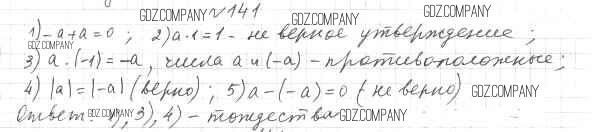 GDZ.COMPANY №141 GDZ.COMPANY GDZ.COMPANY
1) -a+a=0 ; 2) a·1=1 - не верное утверждение ;
GDZ.COMPANY
3) a·(-1)=-a, числа a и (-a) - противоположные ;
4) |a|=|-a| (верно) ; 5) a-(-a)=0 (не верно) GDZ.COMPANY
Ответ: GDZ.COMPANY 1), 3), 4) - тождества GDZ.COMPANY